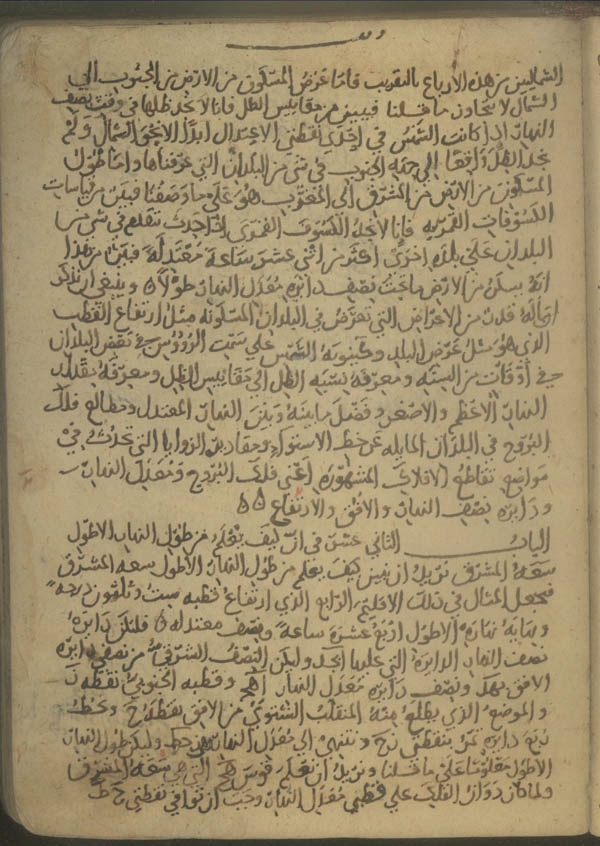 وقف
الشماليين من هذه الارباع بالتقريب فاما عرض المسكون من الارض من الجنوب الي
الشمال لا يتجاوز ما قلنا فيبين من مقاييس الظل فانا لا نجد ظلها في وقت نصف
النهار اذا كانت الشمس في احدي نقطتي الاعتدال ابدا الا نحو الشمال ولم
نجد الظل واقعا الي جهة الجنوب في شي من البلدان التي عرفناها واما طول
المسكون من الارض من المشرق الي المغرب هو علي ما وصفنا فيبين من قياسات
الكسوفات القمرية فانا لا نجد الكسوف القمري اذا حدث تتقدم في شي من
البلدان علي بلد اخري اكثر من اثني عشر ساعة معتدلة فبين من هذا
انه يسكن من الارض ما تحت نصف دايرة معدل النهار طولا وينبغي ان نذكر
امثلة من الاعراض التي تعرض في البلدان المسكونة مثل ارتفاع القطب
الذي هو مثل عرض البلد وكينونة الشمس علي سمت الرووس في بعض البلدان
في اوقات من السنة ومعرفة نسبة الظل الي مقاييس الظل ومعرفة مقدار
النهار الاعظم والاصغر وفضل ما بينه وبين النهار المعتدل ومطالع فلك
البروج في البلدان المايلة عن خط الاستوا ومقادير الزوايا التي تحدث في
مواضع تقاطع الافلاك المشهورة اعني فلك البروج ومعدل النهار
ودايرة نصف النهار والافق والارتفاع
الباب الثاني عشر في ان كيف يعلم من طول النهار الاطول
سعة المشرق نريد ان نبين كيف يعلم من طول النهار الاطول سعة المشرق
فنجعل المثال في ذلك الاقليم الرابع الذي ارتفاع قطبه ست وثلثون درجة
ونهاية نهاره الاطول اربع عشرة ساعة ونصف معتدلة فلتكن دايرة
نصف النهار الدايرة التي عليها ابجد وليكن النصف الشرقي من نصف دايرة
الافق بهد ونصف دايرة معدل النهار اهج وقطبه الجنوبي نقطة ز
والموضع الذي يطلع منه المنقلب الشتوي من الافق نقطة ح ونخط
ربع دايرة تمر بنقطتي زح وتنتهي الي معدل النهار وهي زحط وليكن طول النهار
الاطول معلوما علي ما قلنا ونريد ان نعلم قوس هح التي هي سعة المشرق
ولما كان دوران الفلك علي قطبي معدل النهار وجب ان توافي نقطتي ح ط